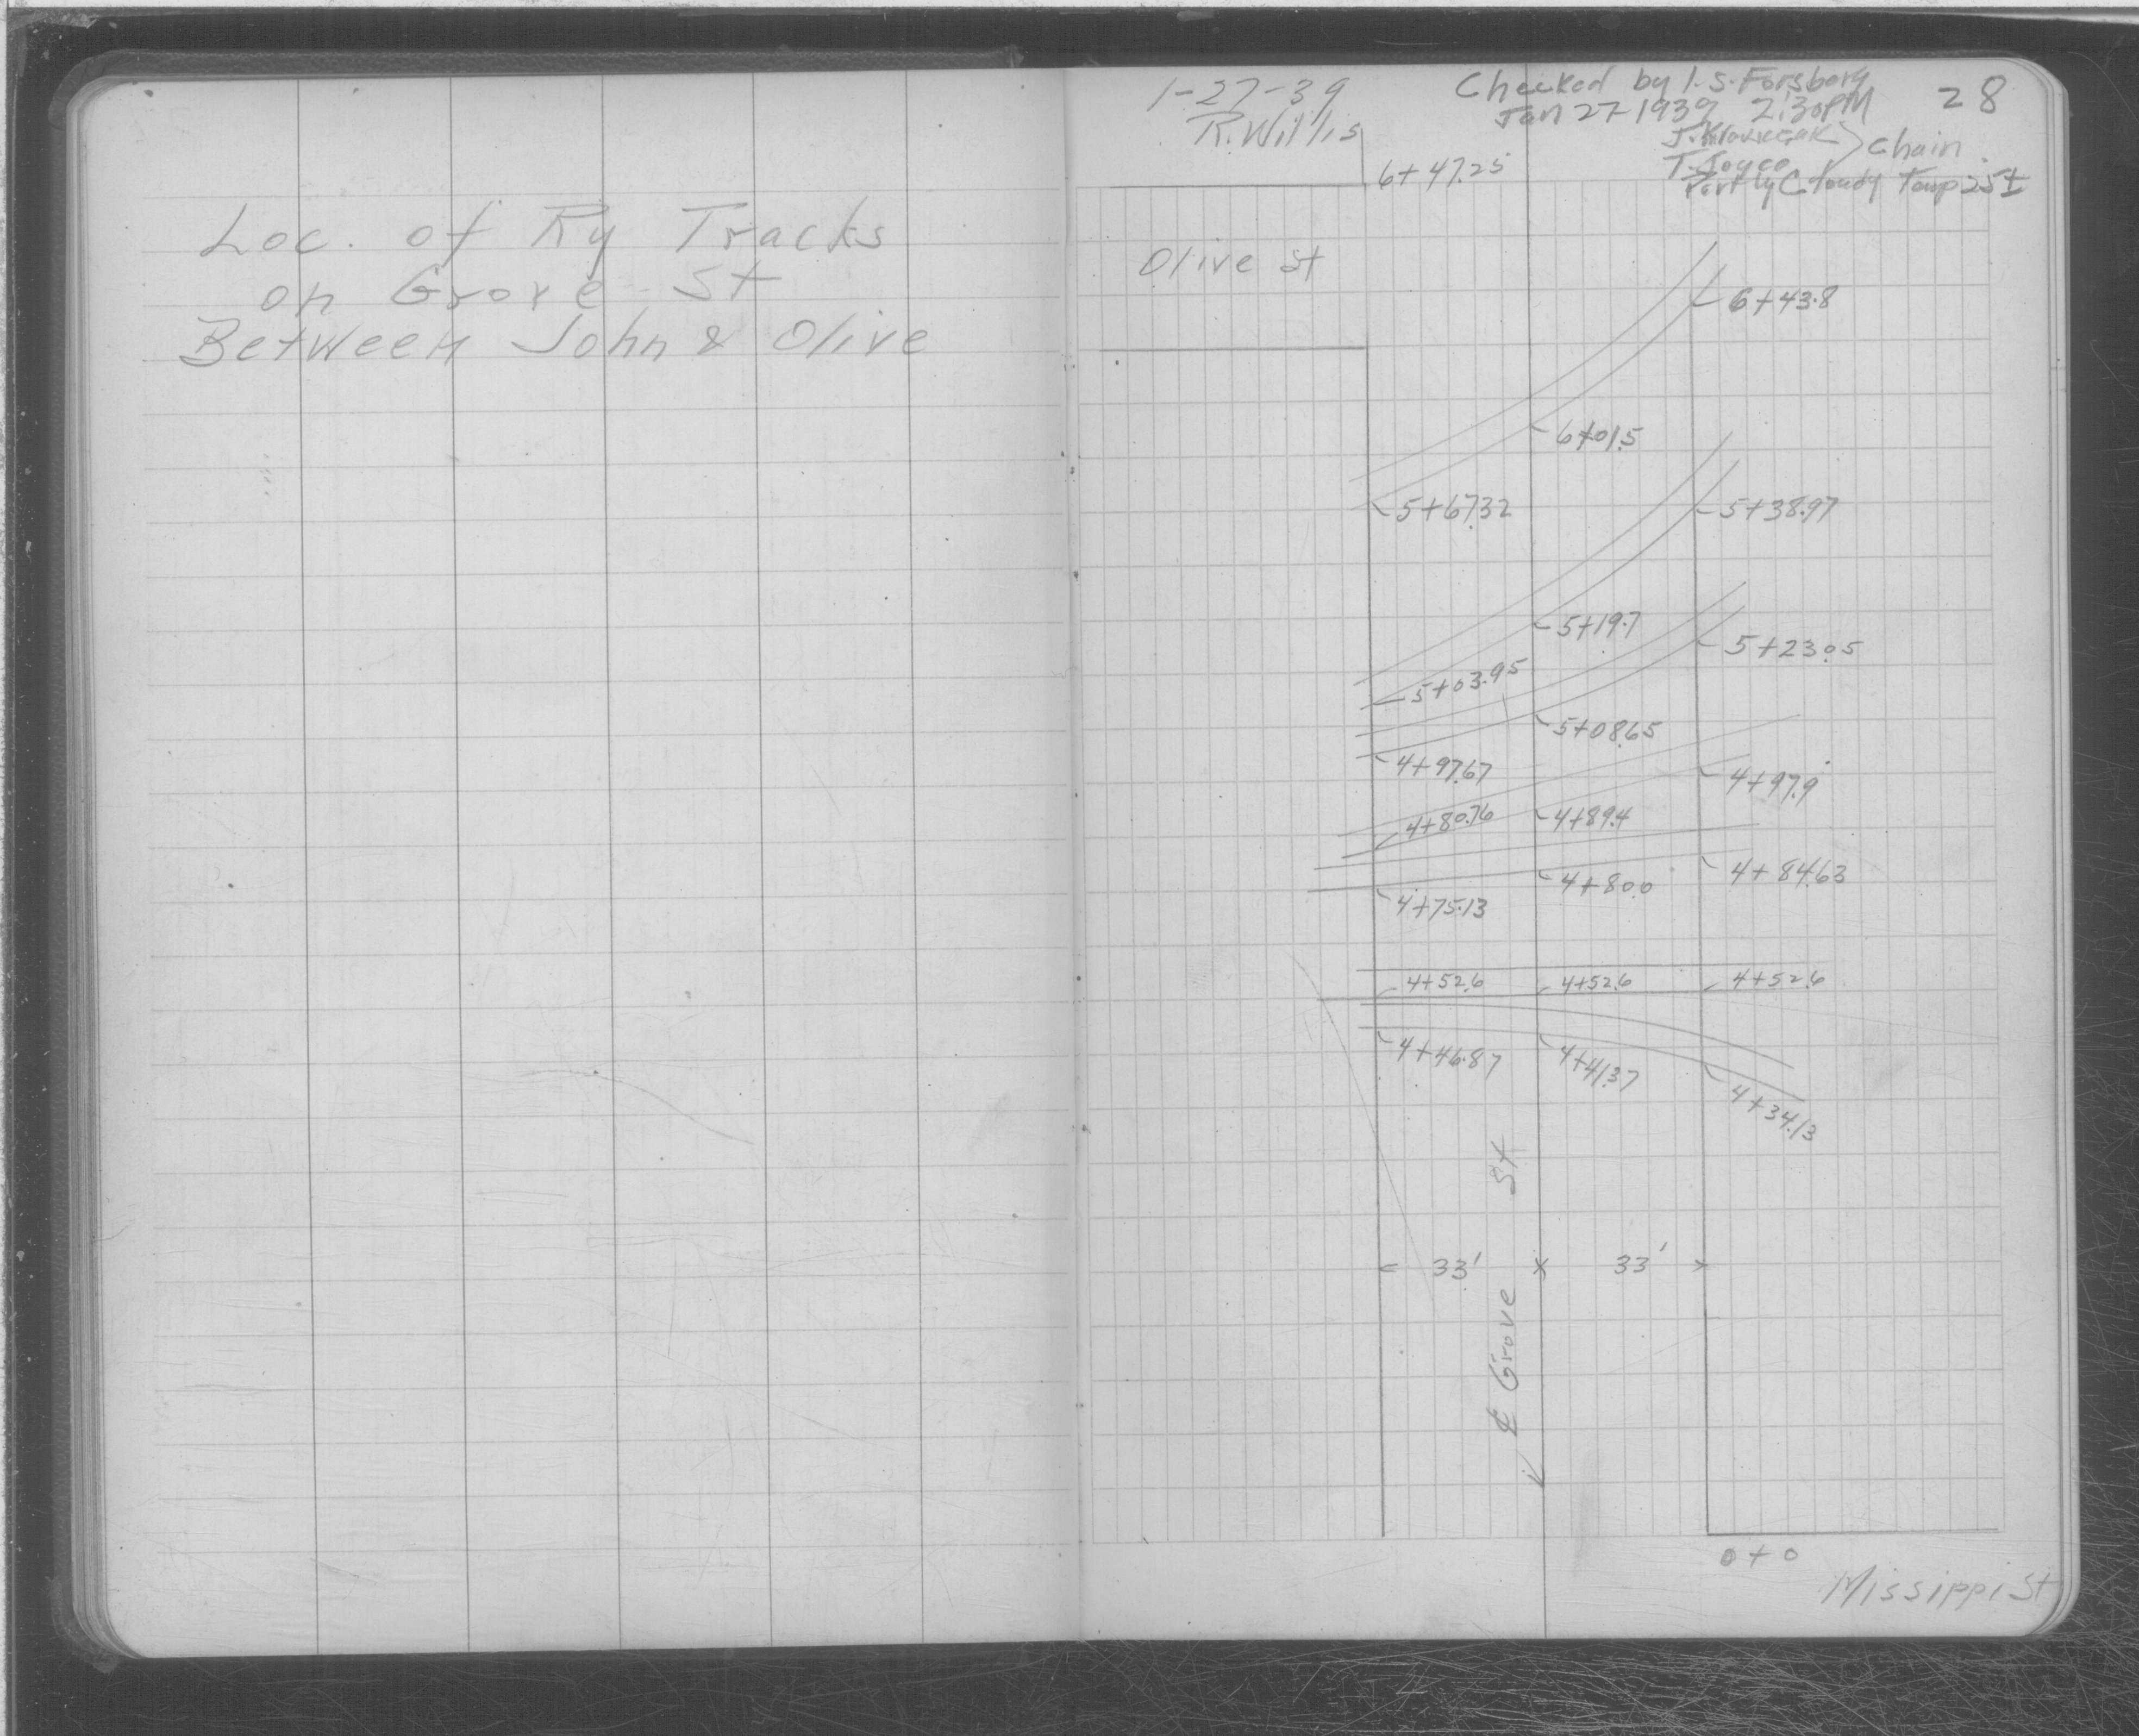 Loc. of Ry Tracks
on Grove St
Between John & Olive
1-27-39
R. Willis
Checked by I.S. Forsberg
Jan 27-1939 2:30PM
28
Chain
T. Joyce
Partly Cloudy Temp 25±
6+47.25
Olive St
6+43.8
6+01.5
5+67.32
5+38.97
5+19.7
5+23.05
5+03.95
5+08.65
4+97.67
4+97.9
4+80.76
4+89.4
4+84.63
4+80.0
4+75.13
4+52.6
4+52.6
4+52.6
4+46.87
4+41.37
4+34.13
33'
33'
℄ Grove St
0+0
Missippi St